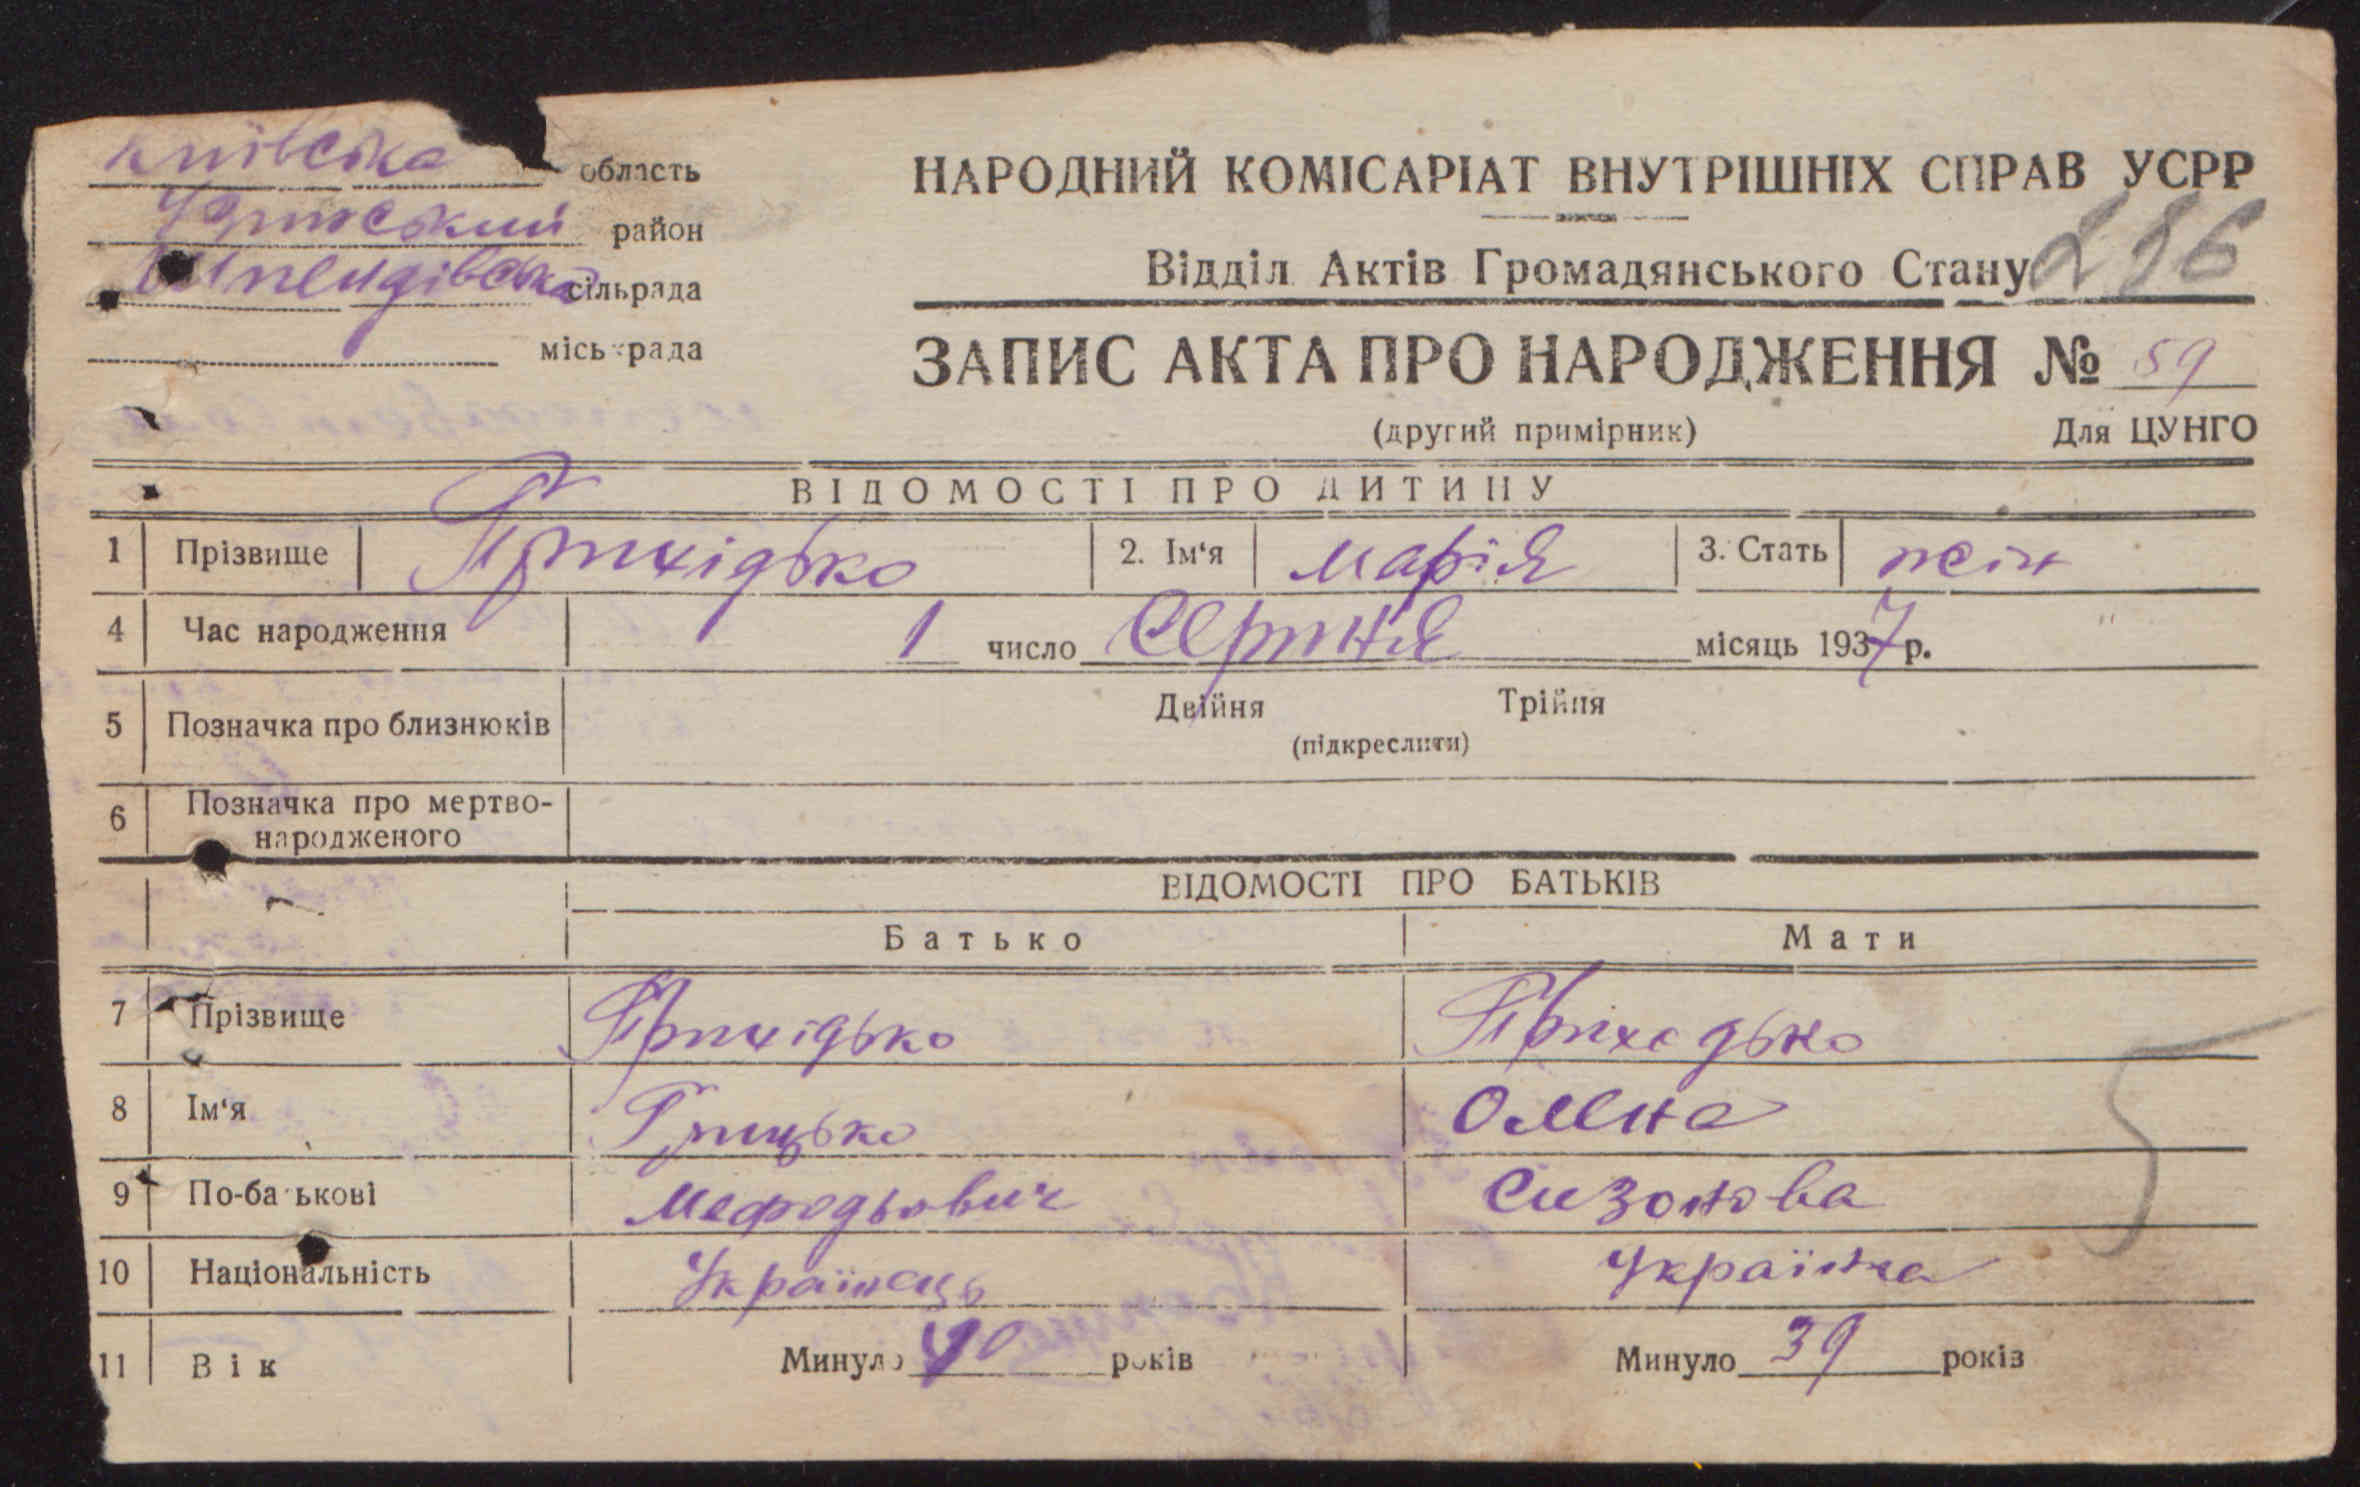 Київська область
район
сільрада
міськрада
НАРОДНИЙ КОМІСАРІАТ ВНУТРІШНІХ СПРАВ УСРР
Відділ Актів Громадянського Стану
ЗАПИС АКТА ПРО НАРОДЖЕННЯ № 59
(другий примірник) Для ЦУНГО
ВІДОМОСТІ ПРО ДИТИНУ
1 Прізвище Прихідько 2. Ім‘я Марія 3. Стать жін
4 Час народження 1 число Серпня місяць 1937 р.
5 Позначка про близнюків Двійня Трійня
(підкреслити)
6 Позначка про мертво-
народженого
ВІДОМОСТІ ПРО БАТЬКІВ
Батько Мати
7 Прізвище Прихідько Приходько
8 Ім‘я Грицько Олена
9 По-батькові Мефодьович Сизонова
10 Національність Українець Українка
11 Вік Минуло 40 років Минуло 39 років